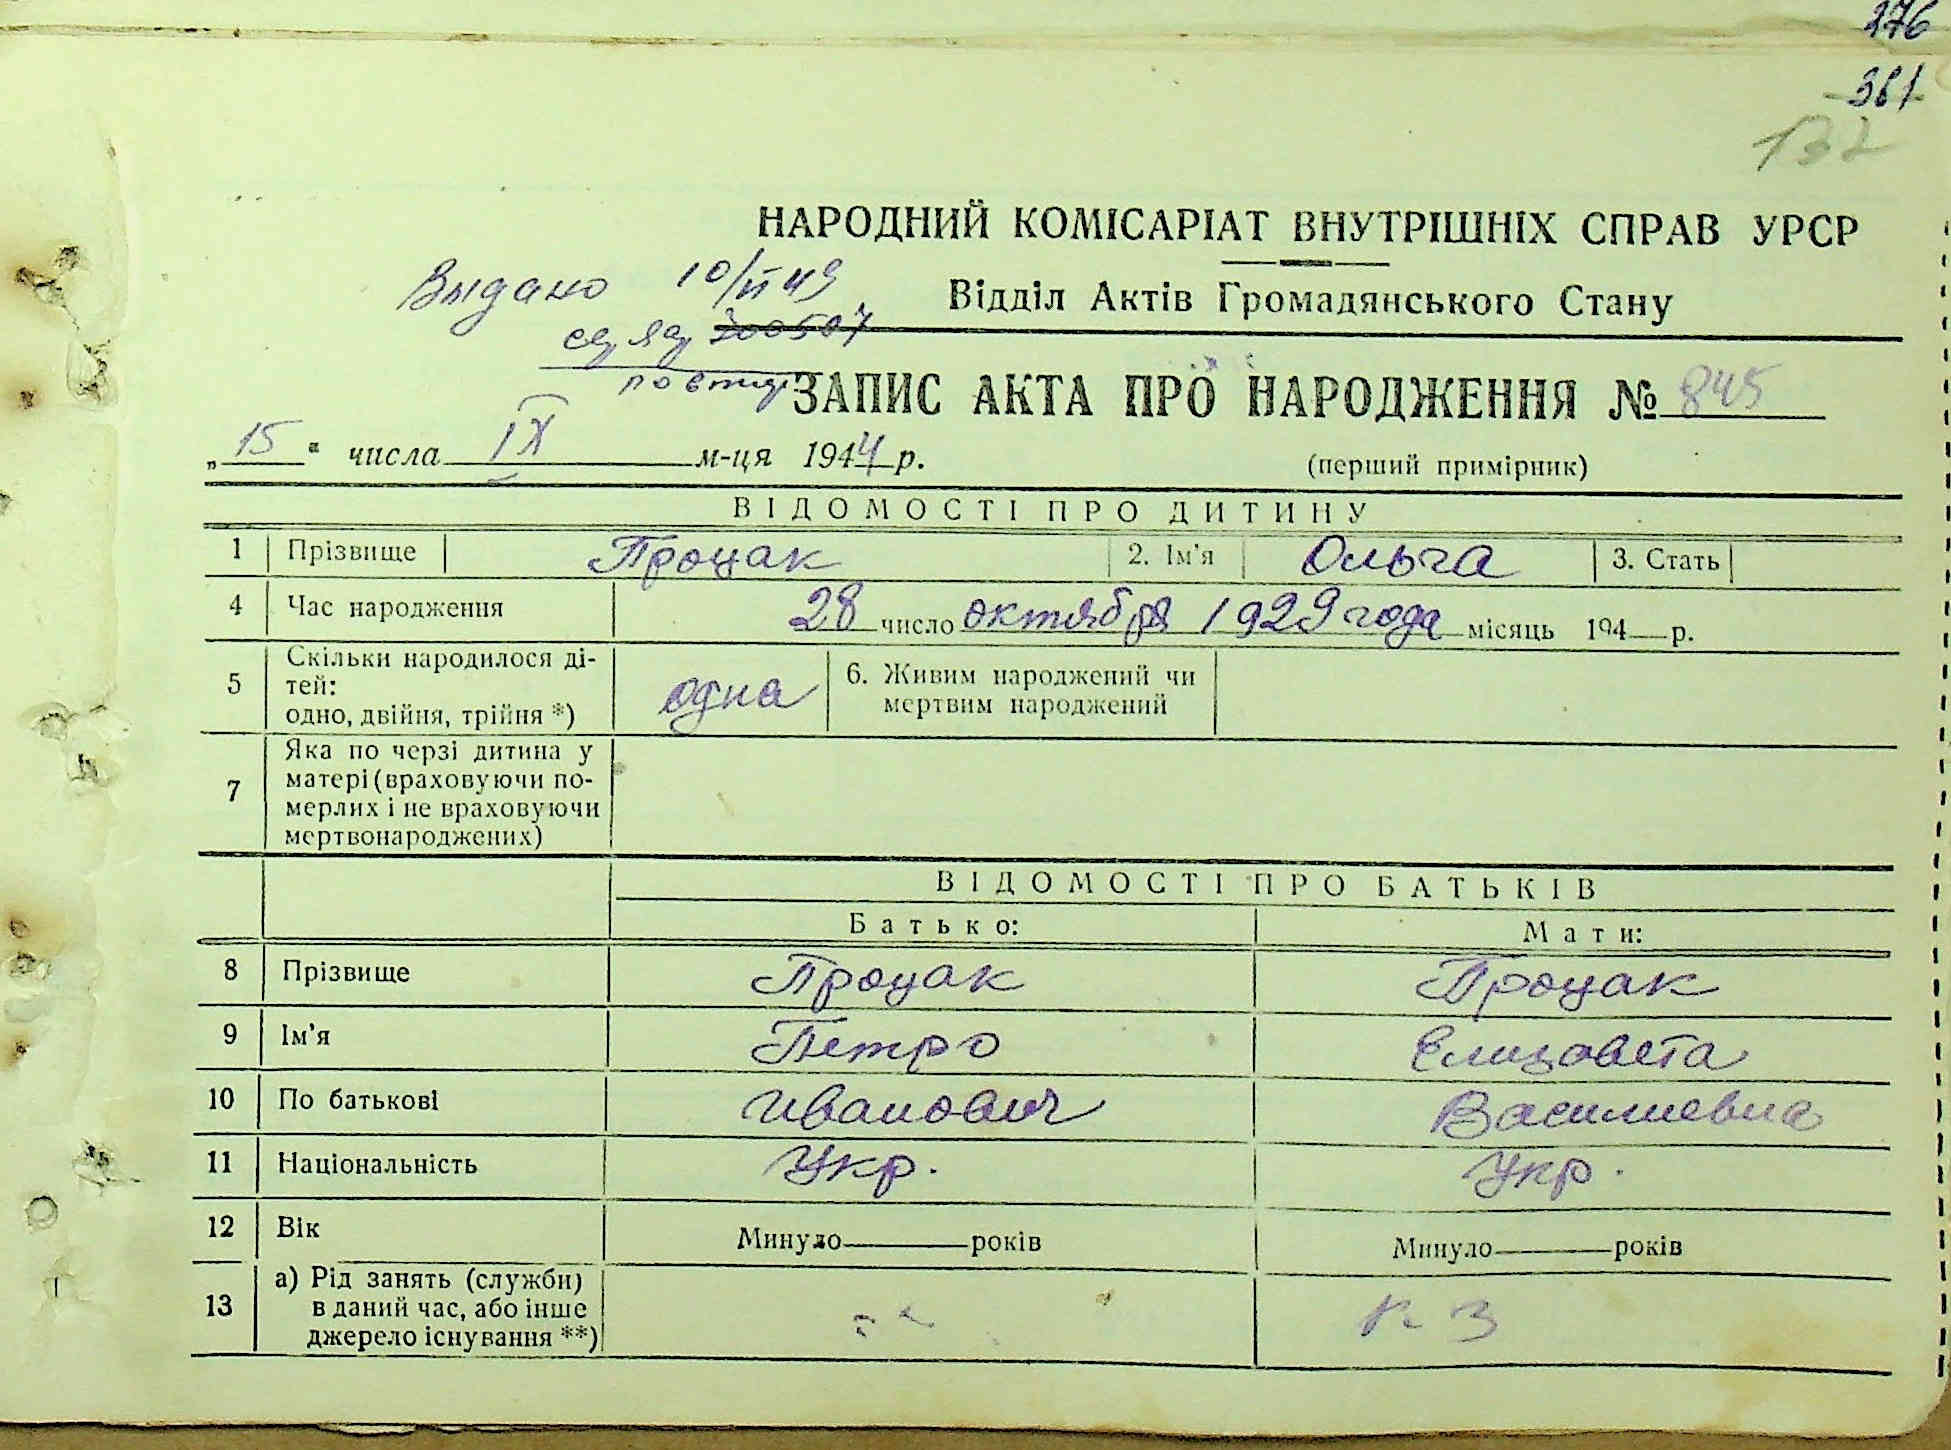 276
381
132
НАРОДНИЙ КОМІСАРІАТ ВНУТРІШНІХ СПРАВ УРСР
Выдано 10/VI 49
Відділ Актів Громадянського Стану
повтор
ЗАПИС АКТА ПРО НАРОДЖЕННЯ № 845
„15“ числа IX м-ця 1944 р.
(перший примірник)
ВІДОМОСТІ ПРО ДИТИНУ
1 Прізвище Процак 2. Ім'я Ольга 3. Стать
4 Час народження 28 число октября 1929 года місяць 194 р.
5 Скільки народилося ді-
тей:
одно, двійня, трійня *) одна
6. Живим народжений чи
мертвим народжений
7 Яка по черзі дитина у
матері (враховуючи по-
мерлих і не враховуючи
мертвонароджених)
ВІДОМОСТІ ПРО БАТЬКІВ
Батько: Мати:
8 Прізвище Процак Процак
9 Ім'я Петро Елизавета
10 По батькові Иванович Василиевна
11 Національність Укр. Укр.
12 Вік Минуло років Минуло років
13 а) Рід занять (служби)
в даний час, або інше
джерело існування **)